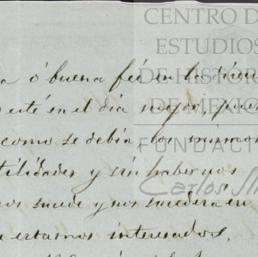 CENTRO D
ESTUDIOS
DE HISTOR
DE MÉXIC
FUNDACI
Carlos
a ó buena fé en la
esté en el dia mejor, pues
como se debia los mismos
tilidades y sin habernos
ros sucede y nos sucedera en
estamos interesados.